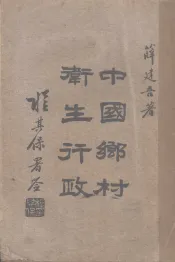 薛建吾著
中國鄉村
衛生行政
其保署